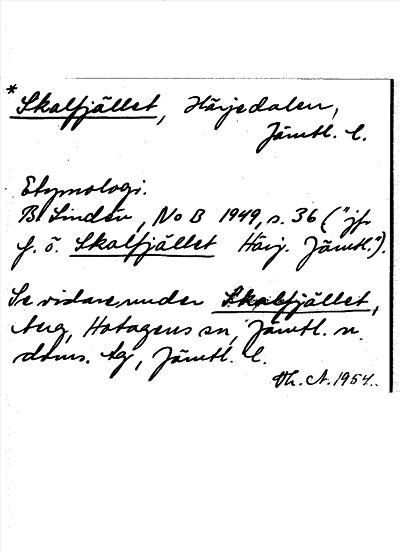 * Skalfjället, Härjedalen,
Jämtl. l.
Etymologi.
B Lindén, No B 1949, s. 36 ("jfr
f. ö. Skalfjället Härj. Jämtl.").
Se vidare under Skalfjället,
Aug, Hotagens sn, Jämtl. n.
doms. tg, Jämtl. l.
Th. A. 1954.